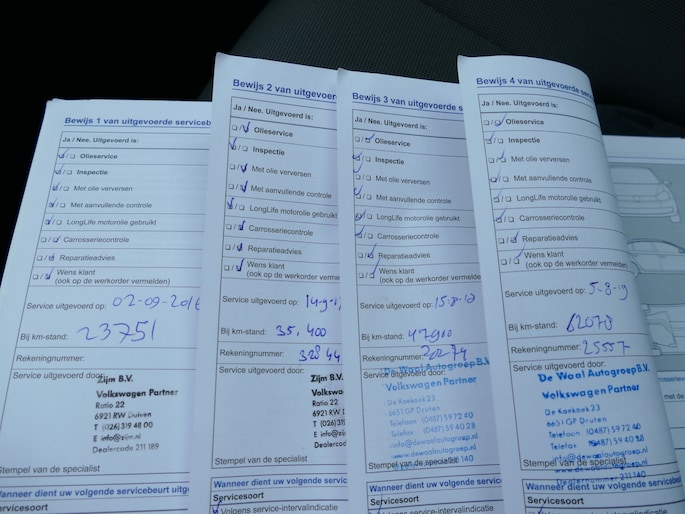 Bewijs 1 van uitgevoerde serviceb
Ja / Nee. Uitgevoerd is:
Olieservice
Inspectie
Met olie verversen
Met aanvullende controle
LongLife motorolie gebruikt
Carrosseriecontrole
Reparatieadvies
Wens klant
(ook op de werkorder vermelden)
Service uitgevoerd op: 02-09-2016
Bij km-stand: 23751
Rekeningnummer:
Service uitgevoerd door:
Zijm B.V.
Volkswagen Partner
Ratio 22
6921 RW Duiven
T (026) 319 48 00
E info@zijm.nl
Dealercode 211 189
Stempel van de specialist
Wanneer dient uw volgende servicebeurt uitg
Bewijs 2 van uitgevoerde
Ja / Nee. Uitgevoerd is:
Olieservice
Inspectie
Met olie verversen
Met aanvullende controle
LongLife motorolie gebruikt
Carrosseriecontrole
Reparatieadvies
Wens klant
(ook op de werkorder vermelden)
Service uitgevoerd op:
Bij km-stand: 35.400
Rekeningnummer: 328 44
Service uitgevoerd door:
Zijm B.V.
Volkswagen
Ratio 22
6921 RW
T (026)
E info@
Dealerco
Stempel van de specialist
Wanneer dient uw volgende
Servicesoort
Volgens service-intervalindicatie
Bewijs 3 van uitgevoerde s
Ja / Nee. Uitgevoerd is:
Olieservice
Inspectie
Met olie verversen
Met aanvullende controle
LongLife motorolie gebruikt
Carrosseriecontrole
Reparatieadvies
Wens klant
(ook op de werkorder vermelden)
Service uitgevoerd op: 15-8-18
Bij km-stand:
Rekeningnummer: 20274
Service uitgevoerd door:
De Waal Autogroep B.V.
Volkswagen Partner
De Koekoek 23
6651 GP Druten
Telefoon (0487) 59 72 40
Telefax (0487) 59 40 28
www.dewaalautogroep.nl
info@dewaalautogroep.nl
140
Stempel van de specialist
Wanneer dient uw volgende s
Servicesoort
Volgens service-intervalindicatie
Bewijs 4 van uitgevoerde serv
Ja / Nee. Uitgevoerd is:
Olieservice
Inspectie
Met olie verversen
Met aanvullende controle
LongLife motorolie gebruikt
Carrosseriecontrole
Reparatieadvies
Wens klant
(ook op de werkorder vermelden)
Service uitgevoerd op: 5-8-19
Bij km-stand: 62078
Rekeningnummer: 25557
Service uitgevoerd door:
De Waal Autogroep B.V.
Volkswagen Partner
De Koekoek 23
6651 GP Druten
Telefoon (0487) 59 72 40
Telefax (0487) 59 40 28
www.dewaalautogroep.nl
info@dewaalautogroep.nl
Dealernummer 211 140
Stempel van de specialist
Wanneer dient uw volgende
Servicesoort
Volgens service-intervalindicatie